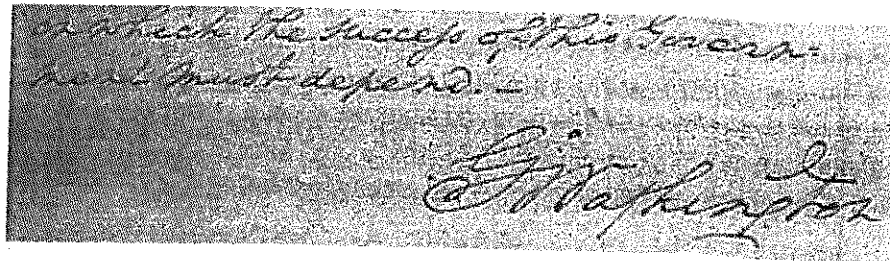 on which the success of this Govern=
ment must depend.—
G:Washington